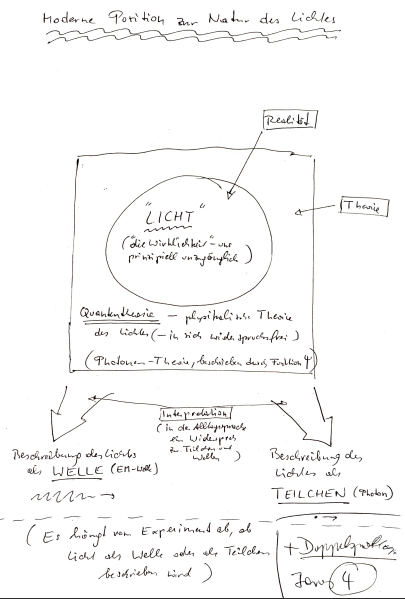 Moderne Position zur Natur des Lichtes
Realität
Theorie
"LICHT"
("die Wirklichkeit" - uns
prinzipiell unzugänglich)
Quantentheorie - physikalische Theorie
des Lichtes (- in sich widerspruchsfrei)
(Photonen-Theorie, beschrieben durch Funktion Ψ)
Interpretation
(in der Alltagssprache
ein Widerspruch
zu Teilchen und
Wellen)
Beschreibung des Lichts
als WELLE (EM-Welle)
Beschreibung des
Lichtes als
TEILCHEN (Photon)
(Es hängt vom Experiment ab, ob
Licht als Welle oder als Teilchen
beschrieben wird)
+ Doppelspalt
Ψ